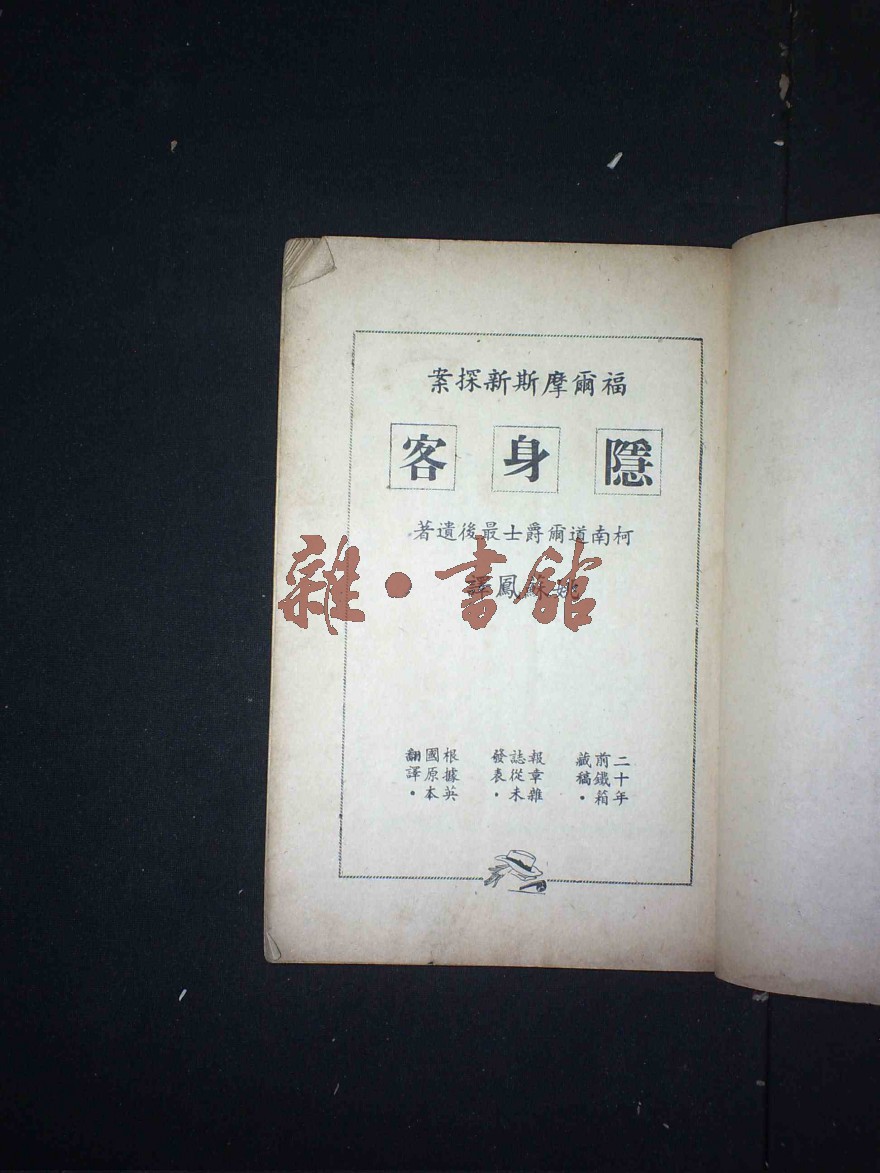 福爾摩斯新探案
隱身客
柯南道爾爵士最後遺著
姚蘇鳳譯
雜·書館
二十年
前鐵箱
藏稿·
報章雜
誌從未
發表·
根據英
國原本
翻譯·